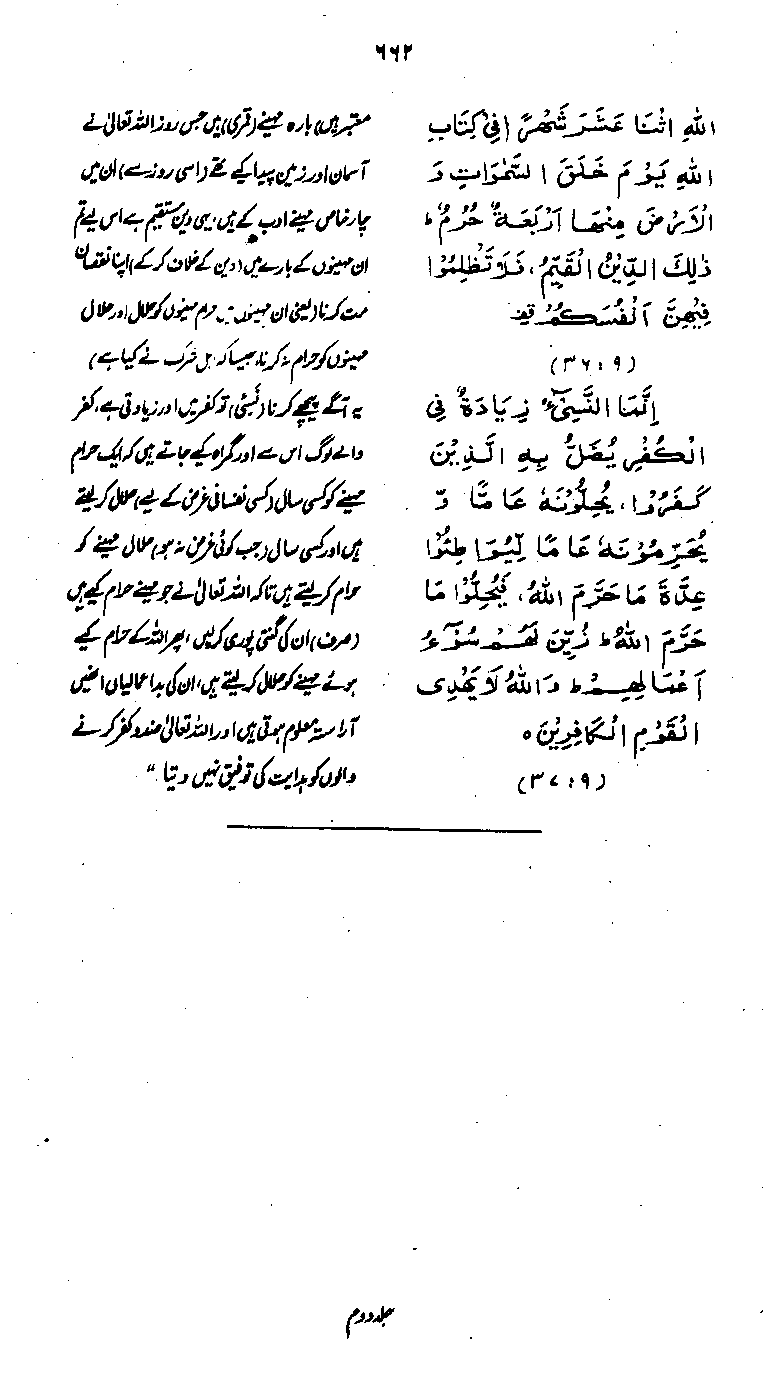 ۶۶۲
اللهِ اثْنَا عَشَرَ شَهْرًا فِیْ کِتَابِ
اللهِ یَوْمَ خَلَقَ السَّمٰوَاتِ وَ
الْاَرْضَ مِنْهَا اَرْبَعَةٌ حُرُمٌ ط
ذٰلِكَ الدِّیْنُ الْقَیِّمُ، فَلَا تَظْلِمُوْا
فِیْهِنَّ اَنْفُسَكُمْ قف
(۹ : ۳۶)
اِنَّمَا النَّسِیْٓءُ زِیَادَةٌ فِی
الْكُفْرِ یُضَلُّ بِهِ الَّذِیْنَ
كَفَرُوْا، یُحِلُّوْنَهٗ عَامًا وَّ
یُحَرِّمُوْنَهٗ عَامًا لِّیُوَاطِئُوْا
عِدَّةَ مَا حَرَّمَ اللهُ، فَیُحِلُّوْا مَا
حَرَّمَ اللهُ ط زُیِّنَ لَهُمْ سُوْٓءُ
اَعْمَالِهِمْ ط وَاللهُ لَا یَهْدِی
الْقَوْمَ الْكَافِرِیْنَ ہ
(۹ : ۳۷)
معتبر ہیں) بارہ مہینے (قمری) ہیں جس روز اللہ تعالیٰ نے
آسمان اور زمین پیدا کیے تھے (اسی روز سے) ان میں
چار خاص مہینے ادب کے ہیں، یہی دین مستقیم ہے اس لیے تم
ان مہینوں کے بارے میں (دین کے خلاف کر کے) اپنا نقصان
مت کرنا (یعنی ان مہینوں میں حرام مہینوں کو حلال اور حلال
مہینوں کو حرام نہ کرنا، جیسا کہ اہل شرک نے کیا ہے)
یہ آگے پیچھے کرنا (نسیٔ) تو کفر میں اور زیادتی ہے، کفر
والے لوگ اس سے اور گمراہ کیے جاتے ہیں کہ ایک حرام
مہینے کو کسی سال (کسی نفسانی غرض کے لیے) حلال کر لیتے
ہیں اور کسی سال (جب کوئی غرض نہ ہو) حلال مہینے کو
حرام کر لیتے ہیں تاکہ اللہ تعالیٰ نے جو مہینے حرام کیے ہیں
(صرف) ان کی گنتی پوری کر لیں، پھر اللہ کے حرام کیے
ہوئے مہینے کو حلال کر لیتے ہیں، ان کی بداعمالیاں انھیں
آراستہ معلوم ہوتی ہیں اور اللہ تعالیٰ ضد و کفر کرنے
والوں کو ہدایت کی توفیق نہیں دیتا۔“
جلد دوم